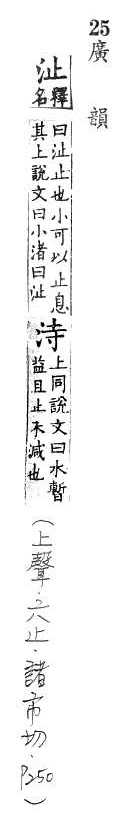 25廣韻
沚釋名曰沚止也小可以止息其上說文曰小渚曰沚 洔上同說文曰水暫益且止未減也
(上聲·六止·諸市切·P250)